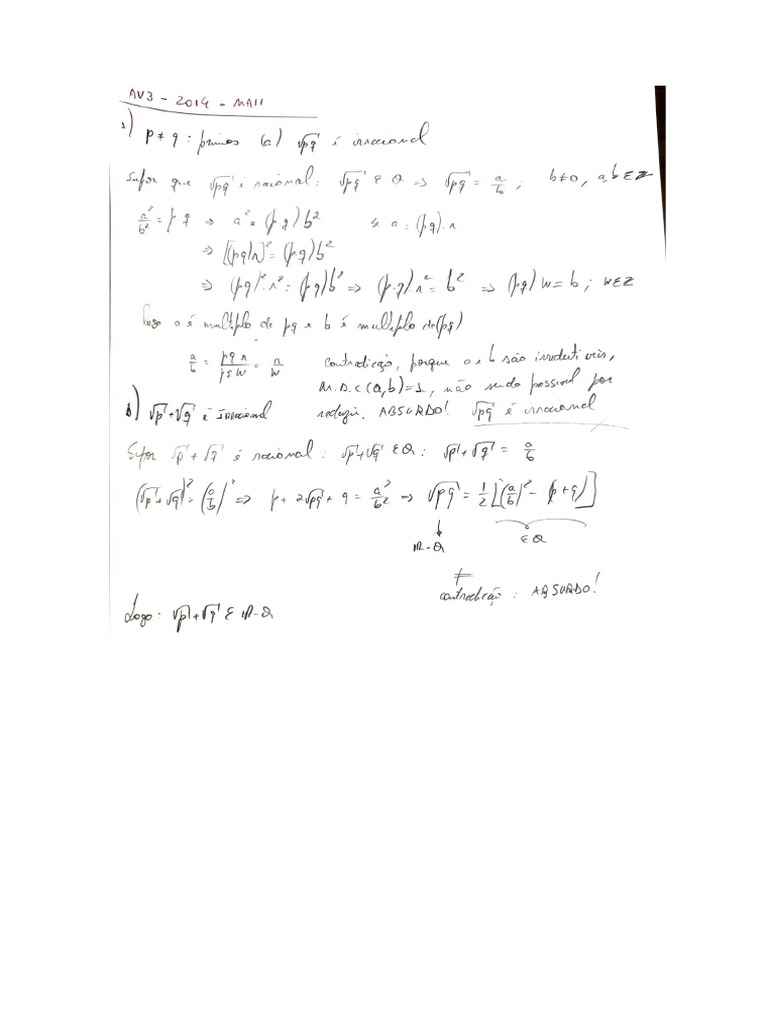 AV3 - 2014 - MA11
1) p ≠ q : primos (a) √pq é irracional
Supor que √pq é racional: √pq ∈ Q ⇒ √pq = a/b ; b≠0, a,b ∈ Z
a²/b² = p·q ⇒ a² = (p·q) b² a = (pq)·n
⇒ [(pq)n]² = (p·q) b²
⇒ (pq)²·n² = (p·q) b² ⇒ (p·q) n² = b² ⇒ (pq) w = b ; w∈Z
Logo a é multiplo de pq e b é multiplo de (pq)
a/b = pqn/pqw = n/w contradição, porque a e b são irredutiveis,
M.D.C (a,b)=1, não sendo possivel por
b) √p+√q é irracional reduzir. ABSURDO! √pq é irracional
Supor √p+√q é racional : √p+√q ∈ Q : √p+√q = a/b
(√p+√q)² = (a/b)² ⇒ p + 2√pq + q = a²/b² → √pq = 1/2 [(a/b)² - (p+q)]
↓ ∈ Q
R-Q
≠
contradição : ABSURDO!
Logo: √p+√q ∈ R-Q